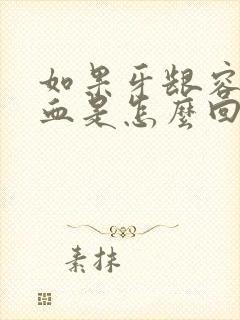 如果牙龈容
血是怎麼回
素抹